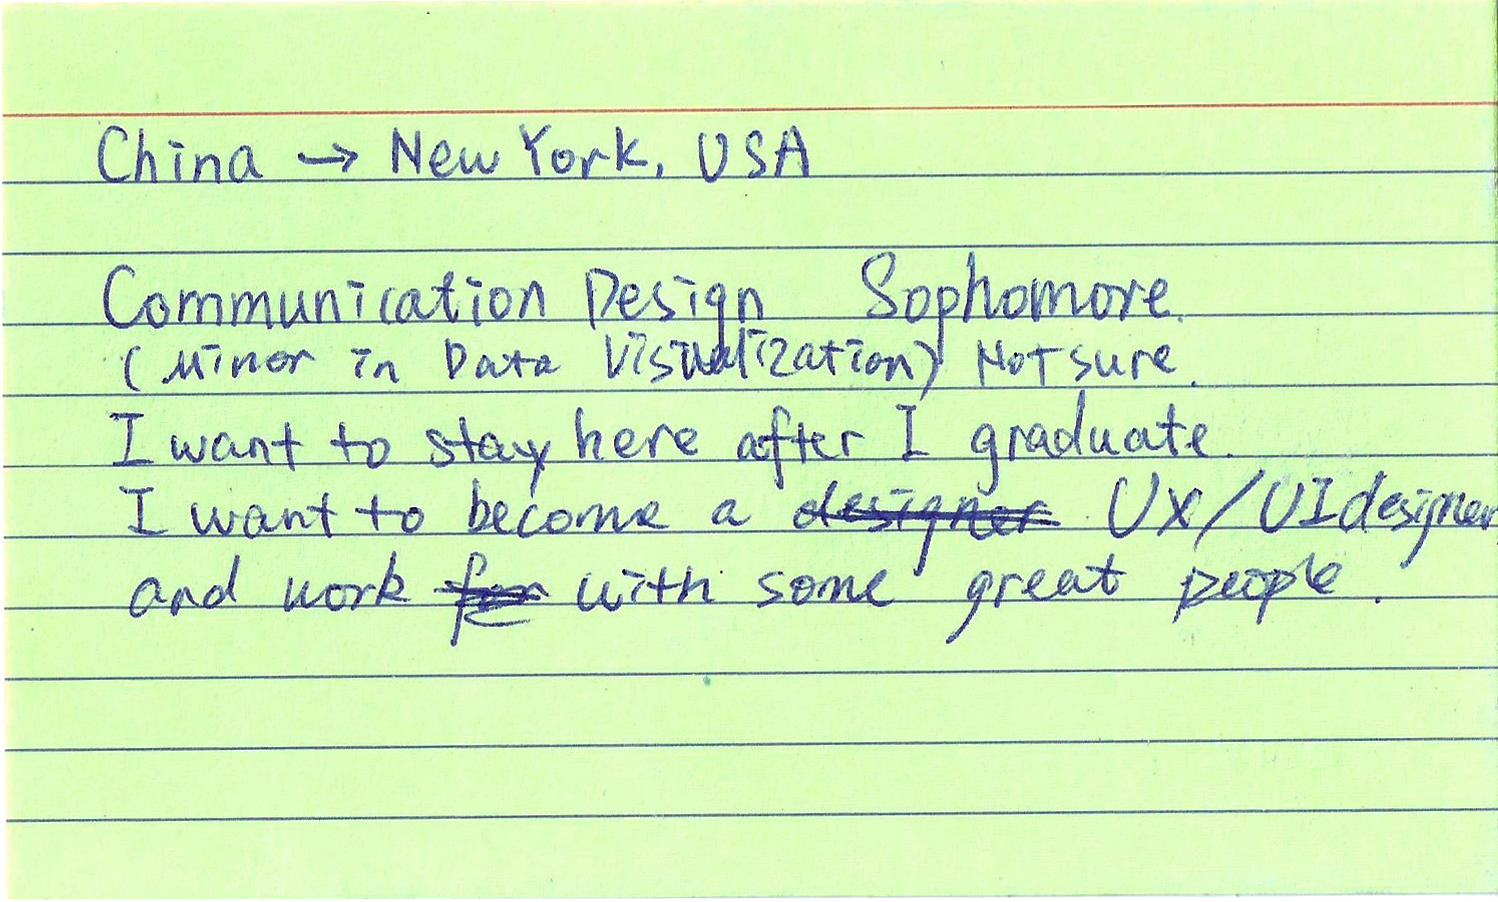 China → New York, USA
Communication Design Sophomore.
(Minor in Data Visualization) Not sure.
I want to stay here after I graduate.
I want to become a designer UX/UI designer
and work for with some great people.